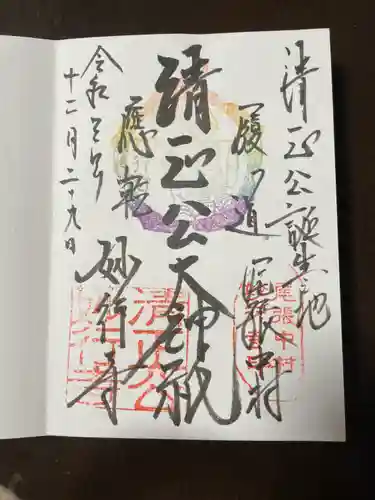 清正公誕生地
尾張中村
清正公大神祇
令和三年
十二月二十九日
妙行寺
尾張中村
清正公